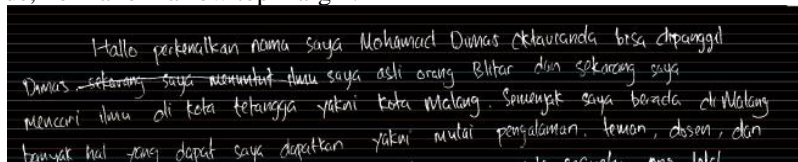 Hallo perkenalkan nama saya Mohamad Dimas Oktavianda bisa dipanggil
Dimas sekarang saya menuntut ilmu saya asli orang Blitar dan sekarang saya
mencari ilmu di kota tetangga yakni kota Malang. Semenjak saya berada di Malang
banyak hal yang dapat saya dapatkan yakni mulai pengalaman, teman, dosen, dan